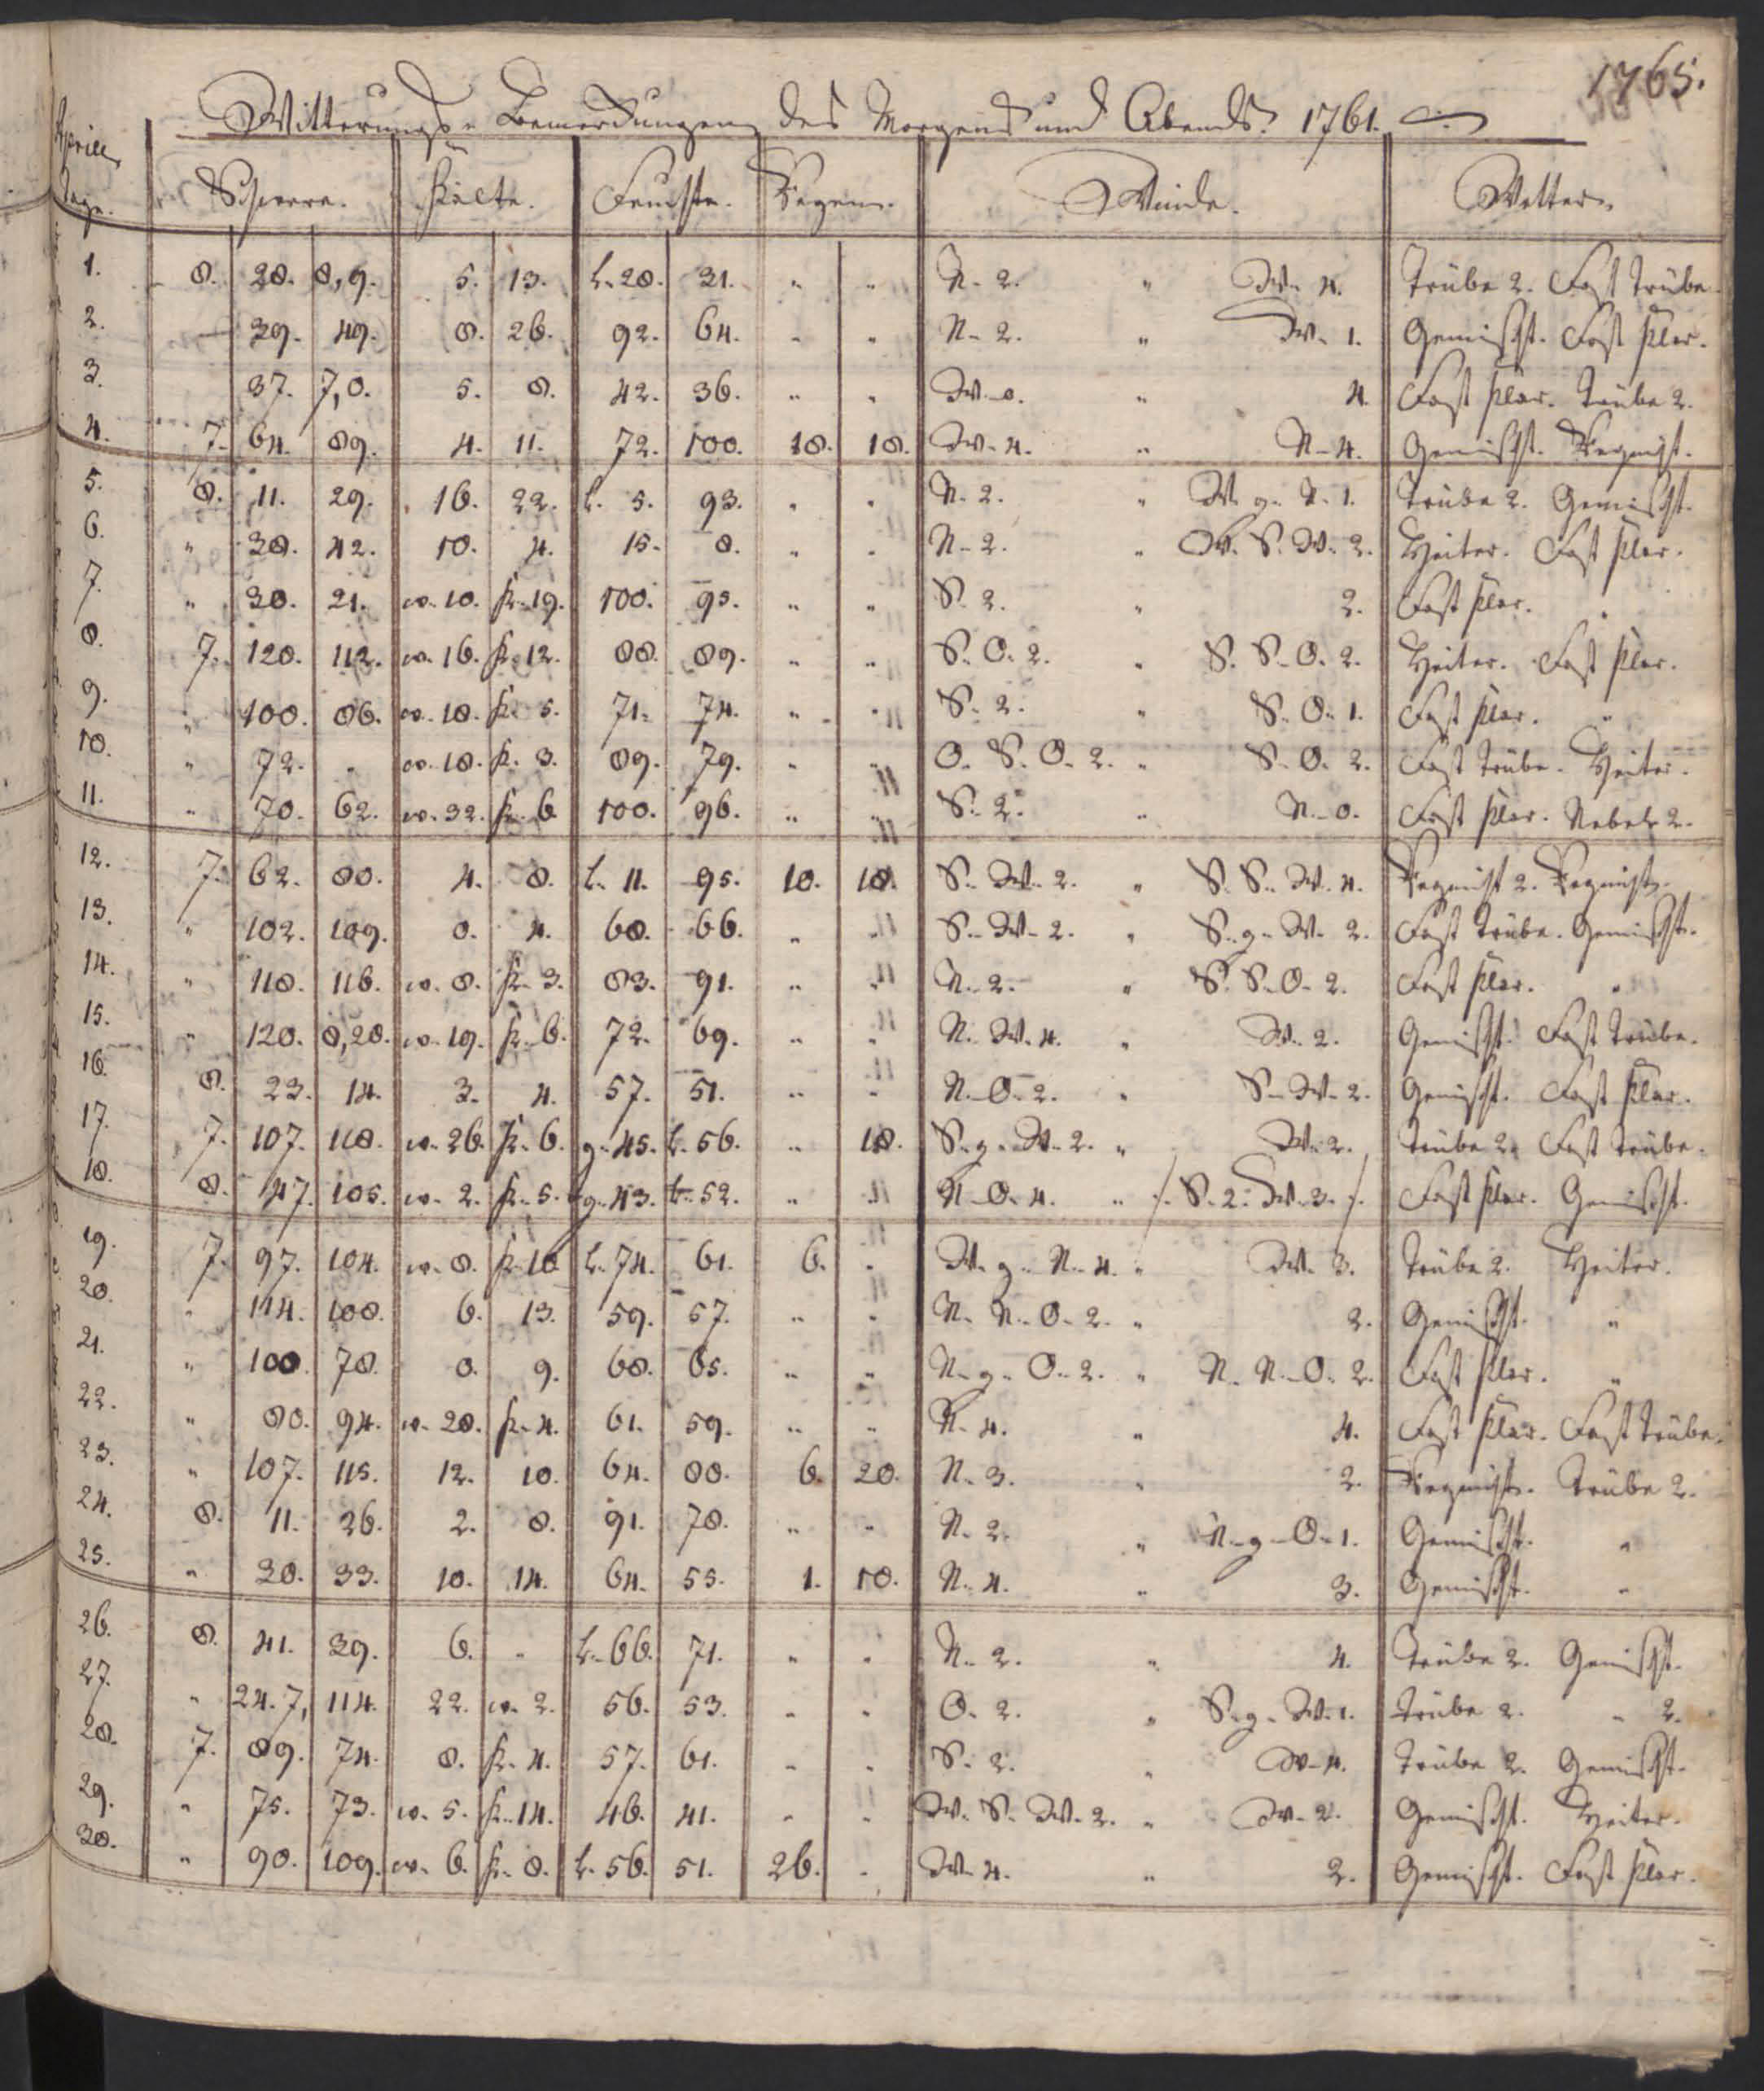 1765.
Witterungs-Bemerckungen des Morgens und Abends. 1761.
Aprill
Tage. Schwere. Kälte. Feuchte. Regen. Winde. Wetter.
1. 8. 28. 8,9. 5. 13. L. 28. 31. " " N. 2. " W. 4. Trübe 2. Fast trübe.
2. 39. 49. 8. 26. 92. 64. " " N. 2. " W. 1. Gemischt. Fast klar.
3. 37. 7,0. 5. 8. 42. 36. " " W. 0. " 4. Fast klar. Trübe 2.
4. 7. 64. 89. 4. 11. 72. 100. 18. 18. W. 4. " N. 4. Gemischt. Regnigt.
5. 8. 11. 29. 16. 22. L. 5. 93. " " N. 2. " W. g. N. 1. Trübe 2. Gemischt.
6. " 38. 42. 10. 4. 15. 8. " " N. 2. " W. S. W. 2. Heiter. Fast klar.
7. " 30. 21. w. 10. K. 19. 100. 95. " " S. 2. " 2. Fast klar. "
8. 7. 120. 112. w. 16. K. 12. 88. 89. " " S. O. 2. " S. S. O. 2. Heiter. Fast klar.
9. " 100. 86. w. 18. K. 5. 71. 74. " " S. 2. " S. O. 1. Fast klar. "
10. " 72. " w. 18. K. 3. 89. 79. " " O. S. O. 2. " S. O. 2. Fast trübe. Heiter.
11. " 70. 62. w. 32. K. 6 100. 96. " " S. 2. " N. 0. Fast klar. Nebel 2.
12. 7. 62. 80. 4. 8. L. 11. 95. 10. 18. S. W. 2. " S. S. W. 4. Regnigt 2. Regnigt.
13. " 102. 109. 0. 4. 68. 66. " " S. W. 2. " S. g. W. 2. Fast trübe. Gemischt.
14. " 118. 116. w. 8. K. 3. 83. 91. " " N. 2. " S. S. O. 2. Fast klar. "
15. " 120. 8,20. w. 19. K. 6. 72. 69. " " N. W. 4. " W. 2. Gemischt. Fast trübe.
16. 8. 23. 14. 3. 4. 57. 51. " " N. O. 2. " S. W. 2. Gemischt. Fast klar.
17. 7. 107. 118. w. 26. K. 6. g. 45. L. 56. " 18. S. g. W. 2. " W. 2. Trübe 2. Fast trübe.
18. 8. 47. 105. w. 2. K. 5. g. 43. L. 52. " " N. O. 4. " /. S. 2. W. 3. /. Fast klar. Gemischt.
19. 7. 97. 104. w. 8. K. 10 L. 74. 61. 6. " W. g. N. 4. " W. 3. Trübe 2. Heiter.
20. " 114. 108. 6. 13. 59. 57. " " N. N. O. 2. " 2. Gemischt. "
21. " 100. 78. 0. 9. 68. 65. " " N. g. O. 2. " N. N. O. 2. Fast klar. "
22. " 80. 94. w. 20. K. 4. 61. 59. " " N. 4. " 4. Fast klar. Fast trübe.
23. " 107. 115. 12. 10. 64. 88. 6. 20. N. 3. " 2. Regnigt. Trübe 2.
24. 8. 11. 26. 2. 8. 91. 78. " " N. 2. " N. g. O. 1. Gemischt. "
25. " 30. 33. 10. 14. 64. 55. 1. 10. N. 4. " 3. Gemischt. "
26. 8. 41. 39. 6. " L. 66. 71. " " N. 2. " 4. Trübe 2. Gemischt.
27. " 24. 7, 114. 22. w. 2. 56. 53. " " O. 2. " S. g. W. 1. Trübe 2. " 2.
28. 7. 89. 74. 8. K. 4. 57. 61. " " S. 2. " W. 4. Trübe 2. Gemischt.
29. " 75. 73. w. 5. K. 14. 46. 41. " " W. S. W. 2. " W. 2. Gemischt. Heiter.
30. " 90. 109. w. 6. K. 8. L. 56. 51. 26. " W. 4. " 2. Gemischt. Fast klar.